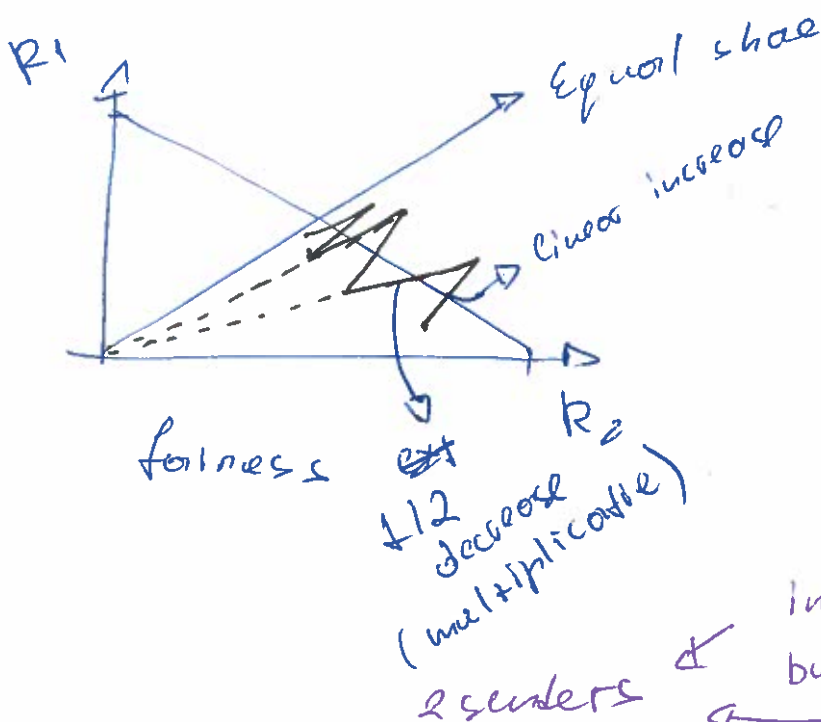 R1
Equal shae
linear increase
R2
fairness
1/2
decrease
(multiplicative)
in
bu
2 senders